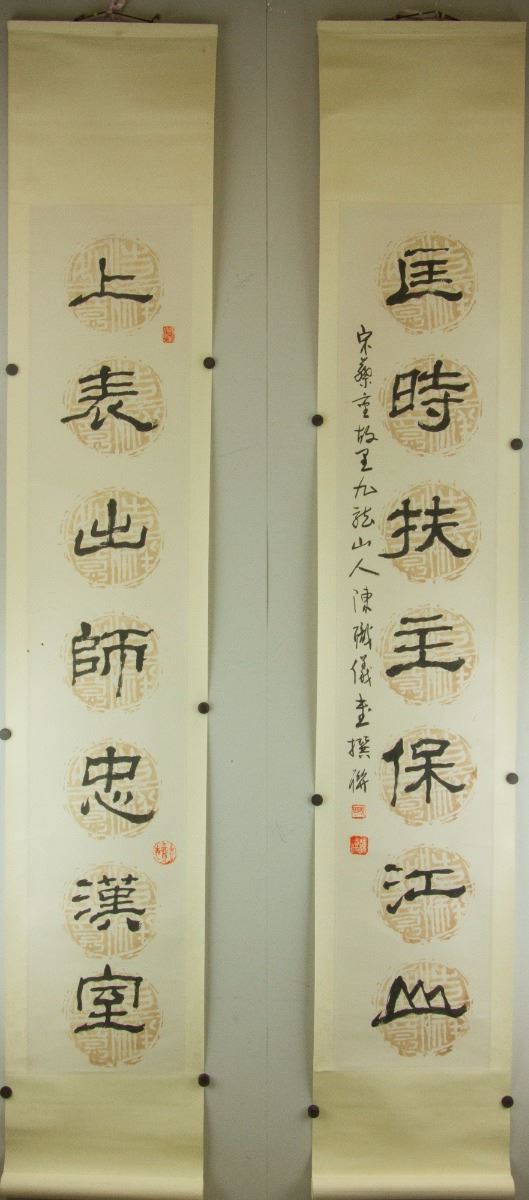 匡時扶主保江山
宋蔡重故里九龍山人陳職儀書撰聯
上表出師忠漢室